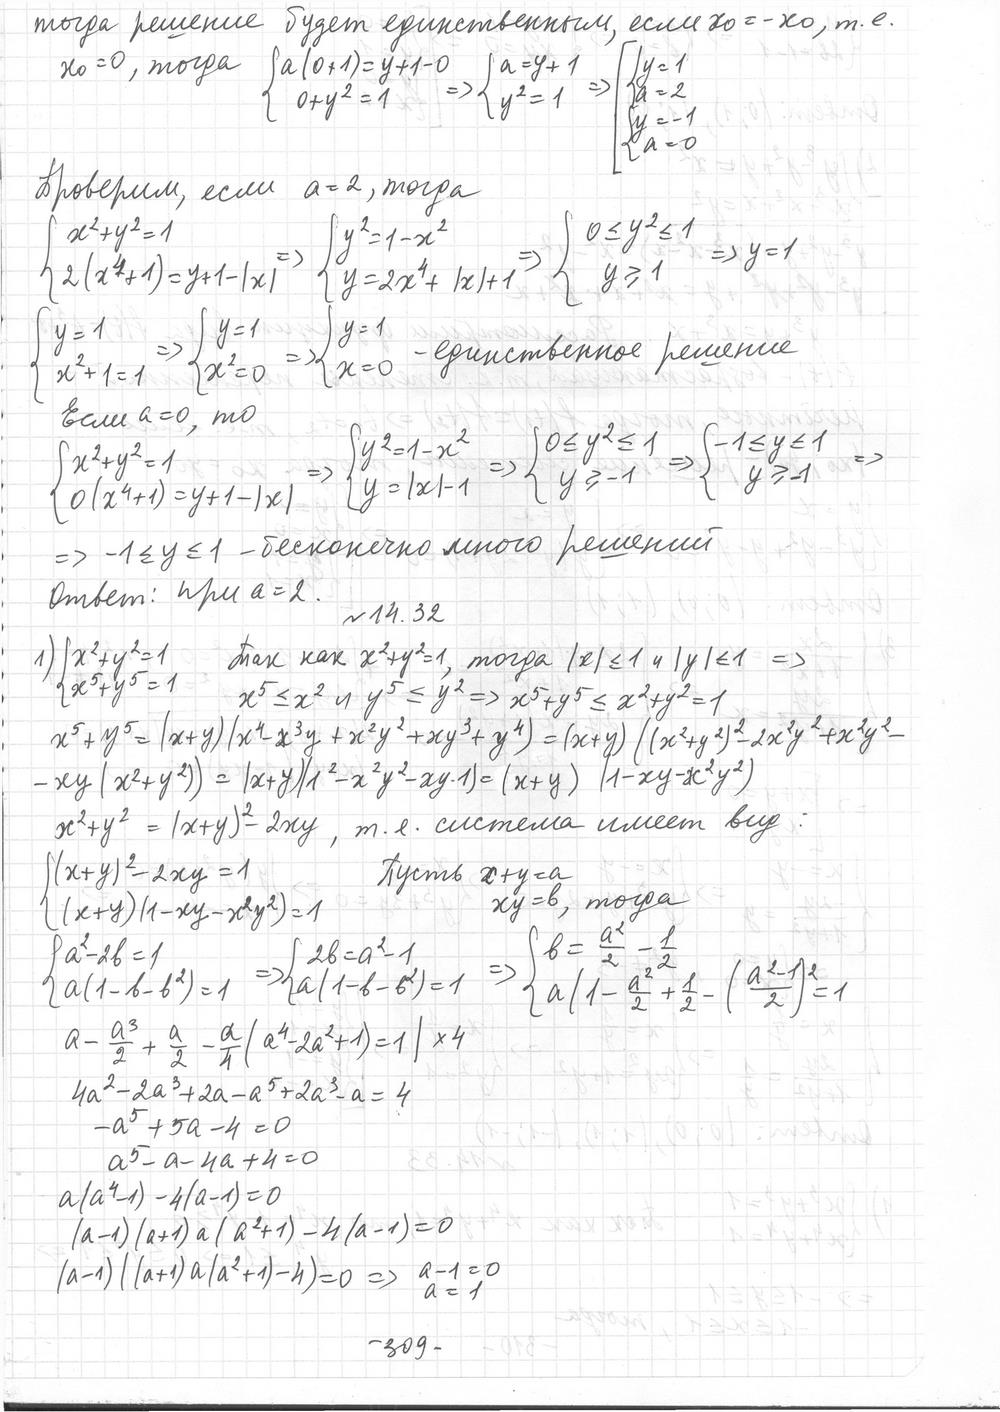 тогда решение будет единственным, если x₀ = -x₀, т.е.
x₀ = 0, тогда { a(0+1) = y+1-0; 0+y² = 1 => { a = y+1; y² = 1 => [ { y = 1; a = 2; { y = -1; a = 0
Проверим, если a = 2, тогда
{ x²+y² = 1; 2(x⁴+1) = y+1-|x| => { y² = 1-x²; y = 2x⁴+|x|+1 => { 0 ≤ y² ≤ 1; y ≥ 1 => y = 1
{ y = 1; x²+1 = 1 => { y = 1; x² = 0 => { y = 1; x = 0 - единственное решение
Если a = 0, то
{ x²+y² = 1; 0(x⁴+1) = y+1-|x| => { y² = 1-x²; y = |x|-1 => { 0 ≤ y² ≤ 1; y ≥ -1 => { -1 ≤ y ≤ 1; y ≥ -1 =>
=> -1 ≤ y ≤ 1 - бесконечно много решений
Ответ: при a = 2.
№14.32
1) { x²+y² = 1; x⁵+y⁵ = 1 Так как x²+y² = 1, тогда |x| ≤ 1 и |y| ≤ 1 =>
x⁵ ≤ x² и y⁵ ≤ y² => x⁵+y⁵ ≤ x²+y² = 1
x⁵+y⁵ = (x+y)(x⁴-x³y+x²y²+xy³+y⁴) = (x+y)((x²+y²)²-2x²y²+x²y²-
-xy(x²+y²)) = (x+y)(1²-x²y²-xy·1) = (x+y)(1-xy-x²y²)
x²+y² = (x+y)²-2xy, т.е. система имеет вид:
{ (x+y)²-2xy = 1; (x+y)(1-xy-x²y²) = 1 Пусть x+y = a
xy = b, тогда
{ a²-2b = 1; a(1-b-b²) = 1 => { 2b = a²-1; a(1-b-b²) = 1 => { b = a²/2 - 1/2; a(1 - a²/2 + 1/2 - ((a²-1)/2)² = 1
a - a³/2 + a/2 - a/4(a⁴-2a²+1) = 1 | ×4
4a²-2a³+2a-a⁵+2a³-a = 4
-a⁵+5a-4 = 0
a⁵-a-4a+4 = 0
a(a⁴-1)-4(a-1) = 0
(a-1)(a+1)a(a²+1)-4(a-1) = 0
(a-1)((a+1)a(a²+1)-4) = 0 => a-1 = 0
a = 1
-309-